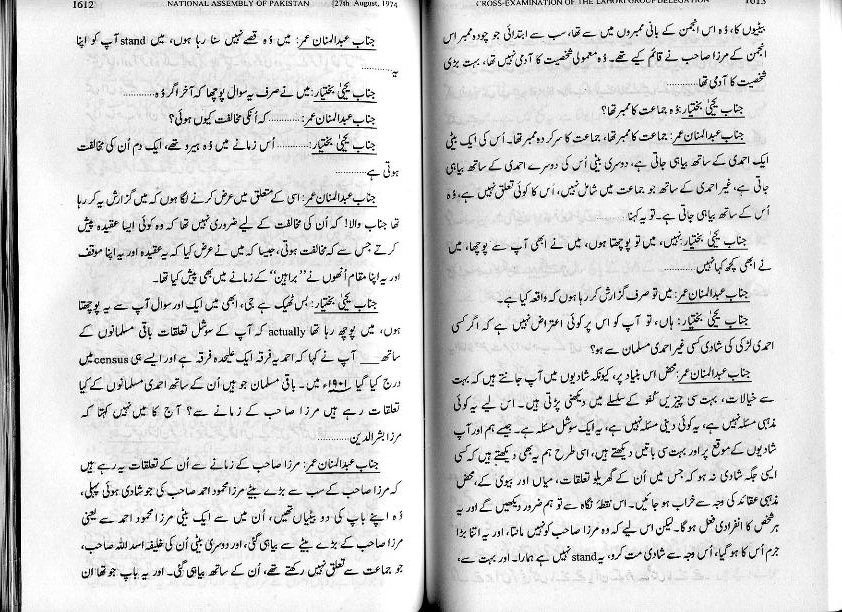 1612 NATIONAL ASSEMBLY OF PAKISTAN [27th August, 1974
جناب عبدالمنان عمر: میں وُہ قصے نہیں سنا رہا ہوں، میں stand آپ کو اپنا
یہ ............
جناب یحییٰ بختیار: میں نے صرف یہ سوال پوچھا کہ آخر اگر وُہ ............
جناب عبدالمنان عمر: ............ کہ اُنکی مخالفت کیوں ہوئی؟
جناب یحییٰ بختیار: ............ اُس زمانے میں وُہ ہیرو تھے، ایک دم اُن کی مخالفت
ہوتی ہے ............
جناب عبدالمنان عمر: اسی کے متعلق میں عرض کرنے لگا ہوں کہ میں گزارش یہ کر رہا
تھا جناب والا! کہ اُن کی مخالفت کے لیے ضروری نہیں تھا کہ وہ کوئی ایسا عقیدہ پیش
کرتے جس سے کہ مخالفت ہوتی، جیسا کہ میں نے عرض کیا کہ یہ عقیدہ اور یہ اپنا موقف
اور یہ اپنا مقام اُنھوں نے ”براہین“ کے زمانے میں بھی پیش کیا تھا۔
جناب یحییٰ بختیار: بس ٹھیک ہے جی، ابھی میں ایک اور سوال آپ سے یہ پوچھتا
ہوں، میں پوچھ رہا تھا actually کہ آپ کے سوشل تعلقات باقی مسلمانوں کے
ساتھ ____ آپ نے کہا کہ احمدیہ فرقہ ایک علیحدہ فرقہ ہے اور ایسے ہی census میں
درج کیا گیا ۱۹۰۱ء میں۔ باقی مسلمان جو ہیں اُن کے ساتھ احمدی مسلمانوں کے کیا
تعلقات رہے ہیں مرزا صاحب کے زمانے سے؟ آج کا میں نہیں کہتا کہ
مرزا بشیرالدین ............
جناب عبدالمنان عمر: مرزا صاحب کے زمانے سے اُن کے تعلقات یہ رہے ہیں
کہ مرزا صاحب کے سب سے بڑے بیٹے مرزا محمود احمد صاحب کی جو شادی ہوئی پہلی،
وُہ اپنے باپ کی دو بیٹیاں تھیں، اُن میں سے ایک بیٹی مرزا محمود احمد سے یعنی
مرزا صاحب کے بڑے بیٹے سے بیاہی گئی، اور دوسری بیٹی اُن کی خلیفہ اسد اللہ صاحب،
جو جماعت سے تعلق نہیں رکھتے تھے، اُن کے ساتھ بیاہی گئی۔ اور یہ باپ جو تھا ان
CROSS-EXAMINATION OF THE LAHORI GROUP DELEGATION 1613
بیٹیوں کا، وُہ اس انجمن کے بانی ممبروں میں سے تھا، سب سے ابتدائی جو چودہ ممبر اس
انجمن کے مرزا صاحب نے قائم کیے تھے۔ وُہ معمولی شخصیت کا آدمی نہیں تھا، بہت بڑی
شخصیت کا آدمی تھا ............
جناب یحییٰ بختیار: وُہ جماعت کا ممبر تھا؟
جناب عبدالمنان عمر: جماعت کا ممبر تھا، جماعت کا سرکردہ ممبر تھا۔ اُس کی ایک بیٹی
ایک احمدی کے ساتھ بیاہی جاتی ہے، دوسری بیٹی اُس کی دوسرے احمدی کے ساتھ بیاہی
جاتی ہے، غیر احمدی کے ساتھ جو جماعت میں شامل نہیں، اُس کا کوئی تعلق نہیں ہے، وُہ
اُس کے ساتھ بیاہی جاتی ہے۔ تو یہ کہنا ............
جناب یحییٰ بختیار: نہیں، میں تو پوچھتا ہوں، میں نے ابھی آپ سے پوچھا، میں
نے ابھی کچھ کہا نہیں ............
جناب عبدالمنان عمر: میں تو صرف گزارش کر رہا ہوں کہ واقعہ کیا ہے۔
جناب یحییٰ بختیار: ہاں، تو آپ کو اس پر کوئی اعتراض نہیں ہے کہ اگر کسی
احمدی لڑکی کی شادی کسی غیر احمدی مسلمان سے ہو؟
جناب عبدالمنان عمر: محض اس بنیاد پر، کیونکہ شادیوں میں آپ جانتے ہیں کہ بہت
سے خیالات، بہت سی چیزیں کُفو کے سلسلے میں دیکھنی پڑتی ہیں۔ اس لیے یہ کوئی
مذہبی مسئلہ نہیں ہے، یہ کوئی دینی مسئلہ نہیں ہے، یہ ایک سوشل مسئلہ ہے۔ جیسے ہم اور آپ
شادیوں کے موقع پر اور بہت سی باتیں دیکھتے ہیں، اسی طرح ہم یہ بھی دیکھتے ہیں کہ کسی
ایسی جگہ شادی نہ ہو کہ جس میں اُن کے گھریلو تعلقات، میاں اور بیوی کے، محض
مذہبی عقائد کی وجہ سے خراب ہو جائیں۔ اس نقطۂ نگاہ سے تو ہم ضرور دیکھیں گے اور یہ
ہر شخص کا انفرادی فعل ہوگا۔ لیکن اس لیے کہ وہ مرزا صاحب کو نہیں مانتا، اور یہ اتنا بڑا
جرم اُس کا ہو گیا، اُس وجہ سے شادی مت کرو، یہ stand نہیں ہے ہمارا۔ اور بہت سے،